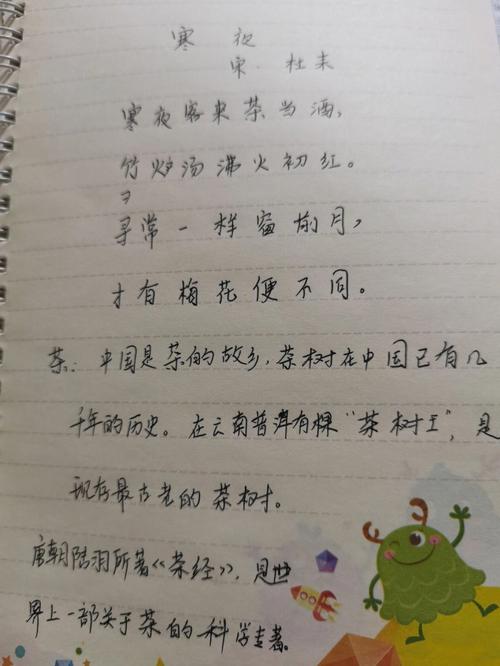 寒夜
宋·杜耒
寒夜客来茶当酒,
竹炉汤沸火初红。
寻常一样窗前月,
才有梅花便不同。
茶:中国是茶的故乡,茶树在中国已有几
千年的历史。在云南普洱有棵“茶树王”,是
现存最古老的茶树。
唐朝陆羽所著《茶经》,是世
界上一部关于茶的科学专著。